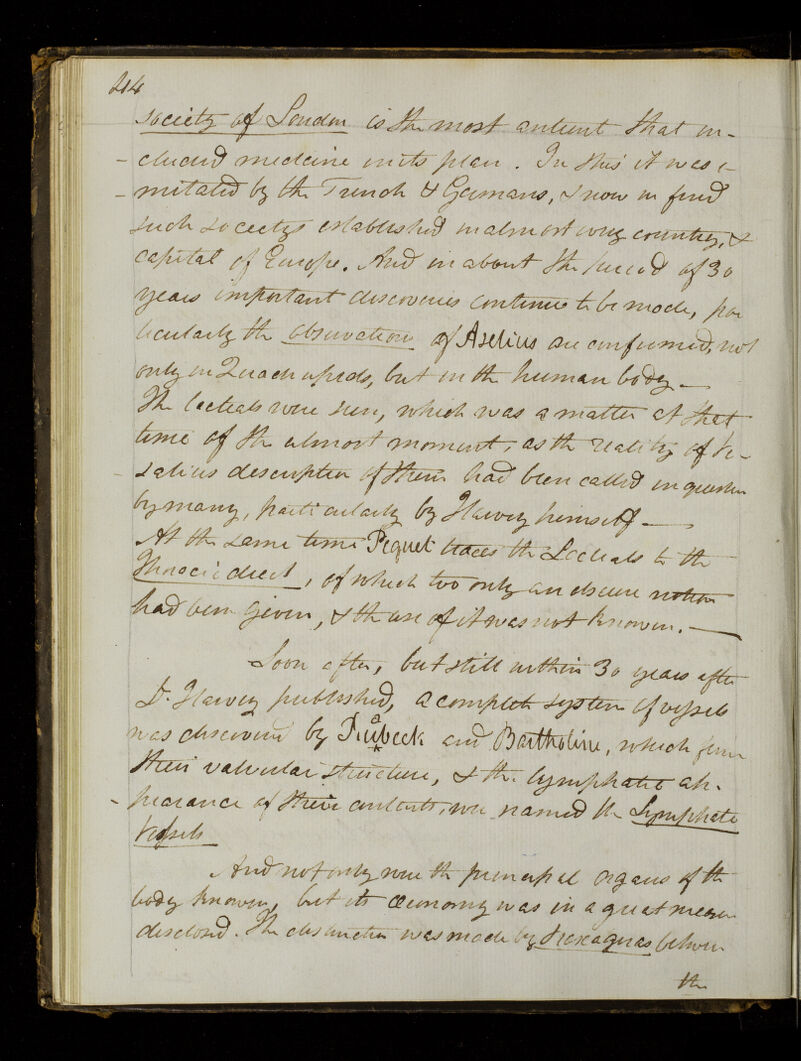 214
society of London is the most antient that in-
cluded medicine in its plan. In this it was i-
mitated by the French & Germans, & now we find
such societys established in almost every country, &
capital of Europe. And in about the period of 30
years important discoveries continue to be made, par
ticularly the observations of Aselius are confirmed, not
only in Quadrupeds, but in the human body —
The lacteals were seen, which was a matter at that
time of the utmost moment, as the reality of Ve-
salius description of them had been called in question
by many, particularly by Harvey himself —
At the same time Pequet traces the Lacteals to the
Thoracic duct, of which too only an obscure notion
had been given, & the use of it was not known. —
Soon after, but still within 30 years after
Dr Harvey published, a complete system of vessels
was discovered by and Bartholine, which from
their valvular structure, & the lymphatic ap-
pearance of their contents, were named the Lymphatic
Vessels
And not only were the principal organs of the
body known, but its œconomy was in a great measure
disclosed. The distinction was made by between
the